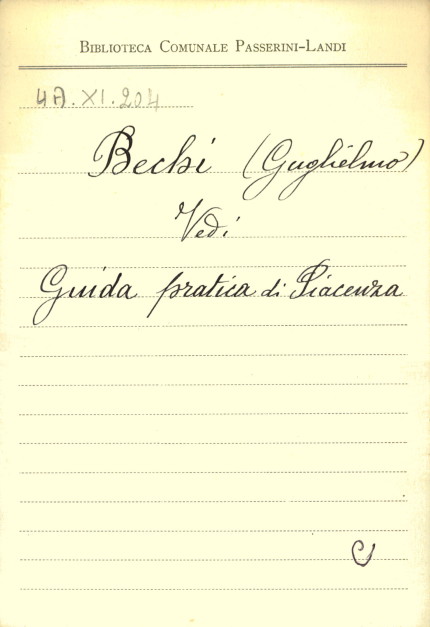 BIBLIOTECA COMUNALE PASSERINI-LANDI
4A.XI.204
Bechi (Guglielmo)
Vedi
Guida pratica di Piacenza